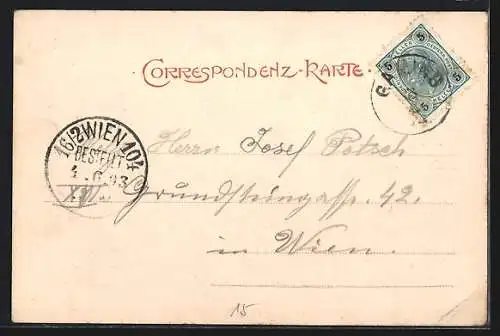 CORRESPONDENZ-KARTE.
5 HELLER 5
5 HELLER 5
16/2 WIEN 104
BESTELLT
4. 6. 03
XVI
Herrn Josef Potsch
Grundsteingasse 42.
in Wien.
15